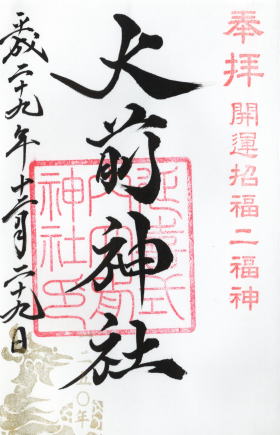 奉拝
開運招福二福神
大前神社
延喜式
内大前
神社印
平成二十九年十二月二十九日
五〇年